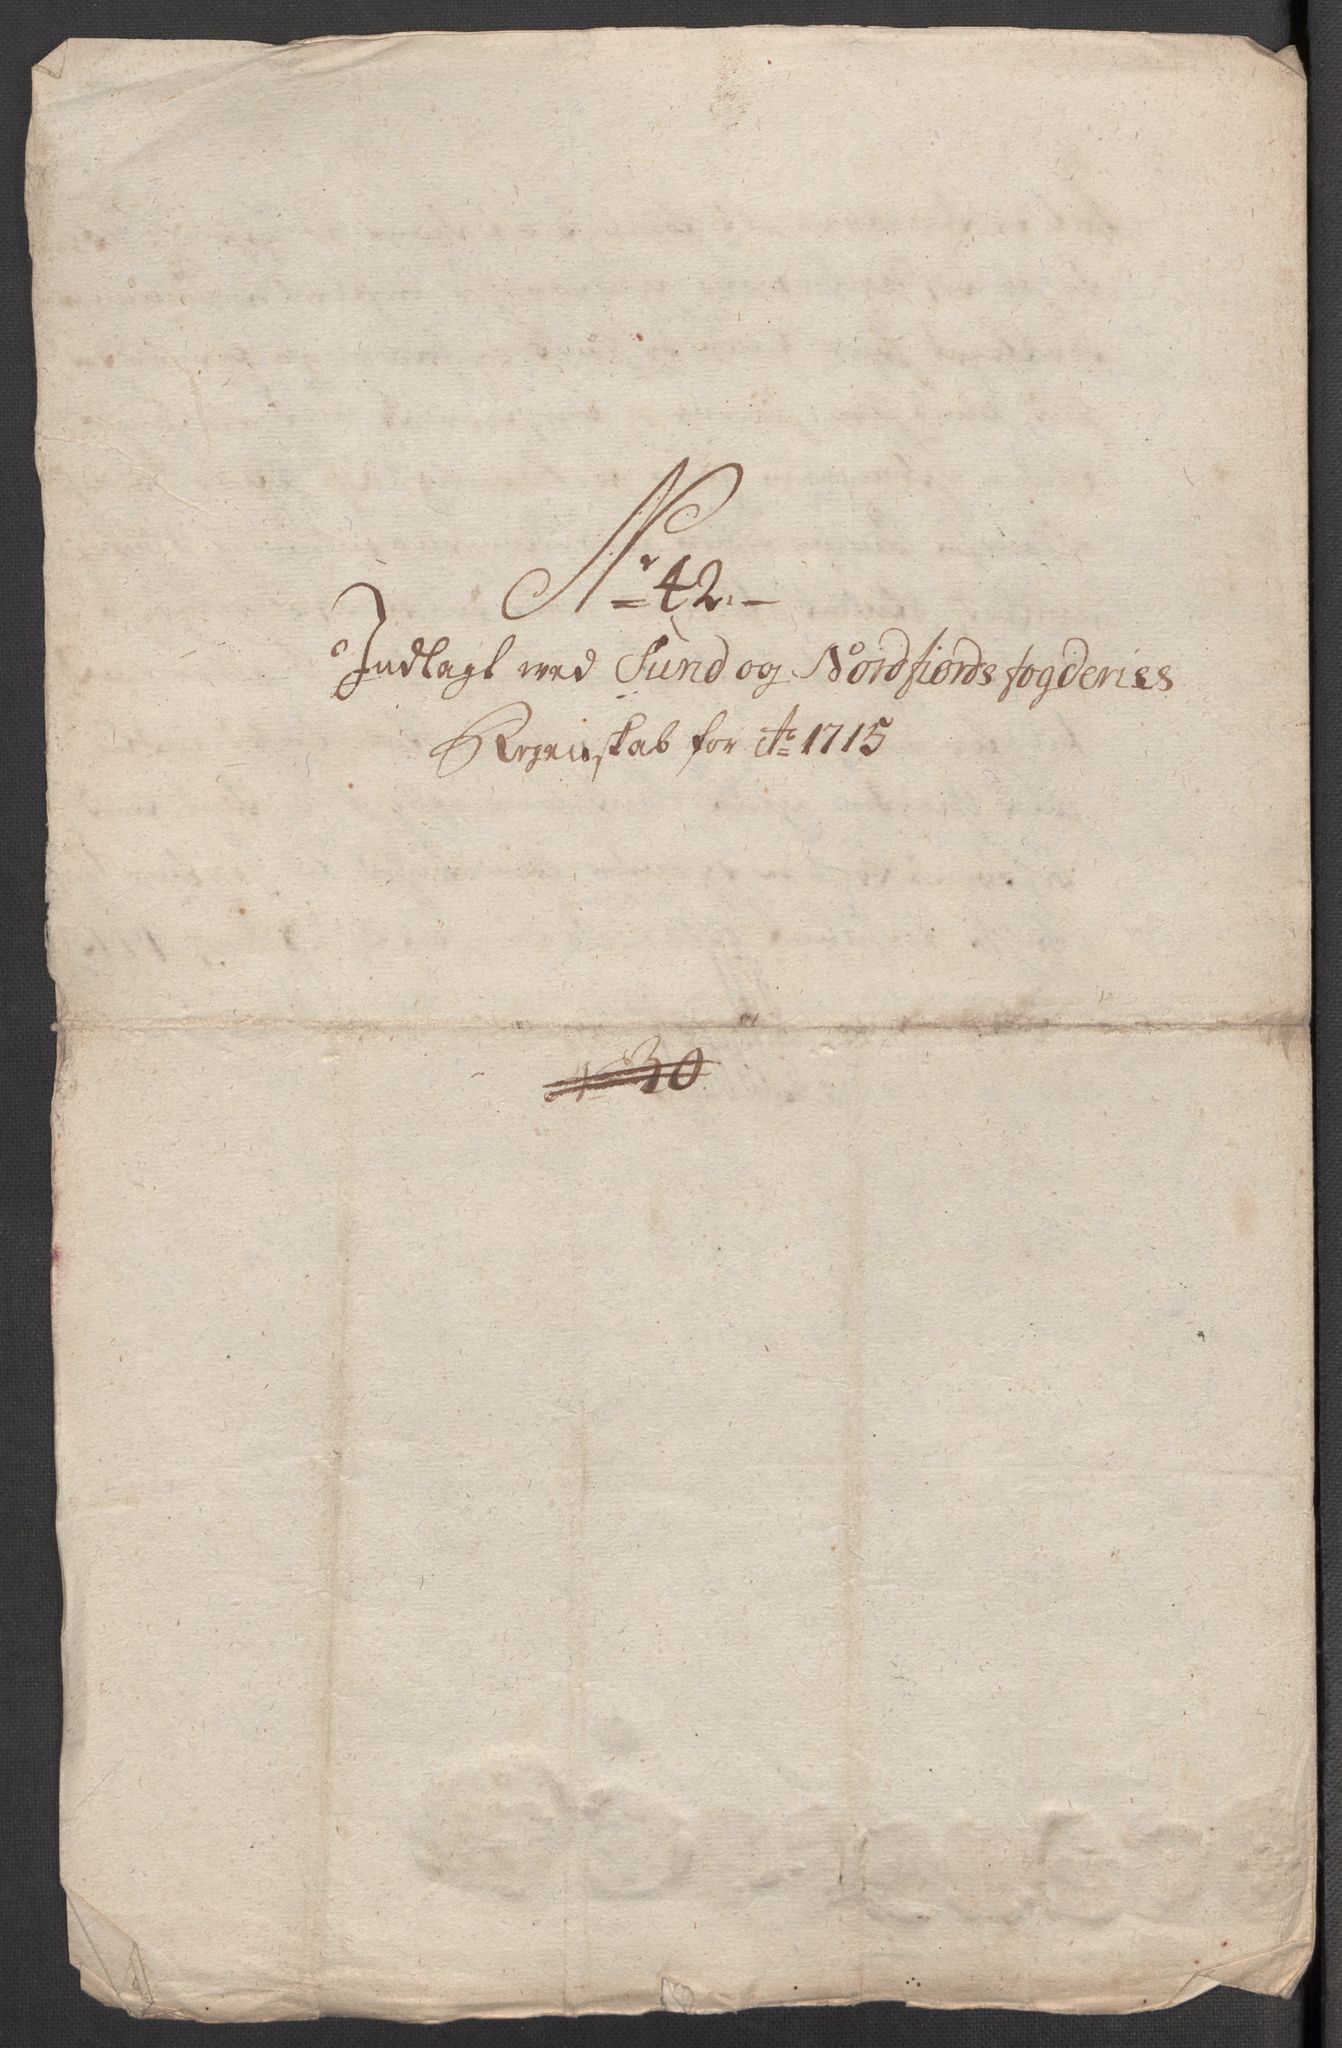 Nr 42.
Indlagt med Sund og Nordfiords fogderies
Regenskab for Ao 1715
30